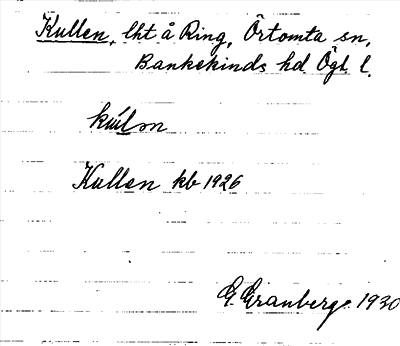 Kullen, lht å Ring, Örtomta sn,
Bankekinds hd Ögl l.
Kullen kb 1926
G. Granberg. 1930